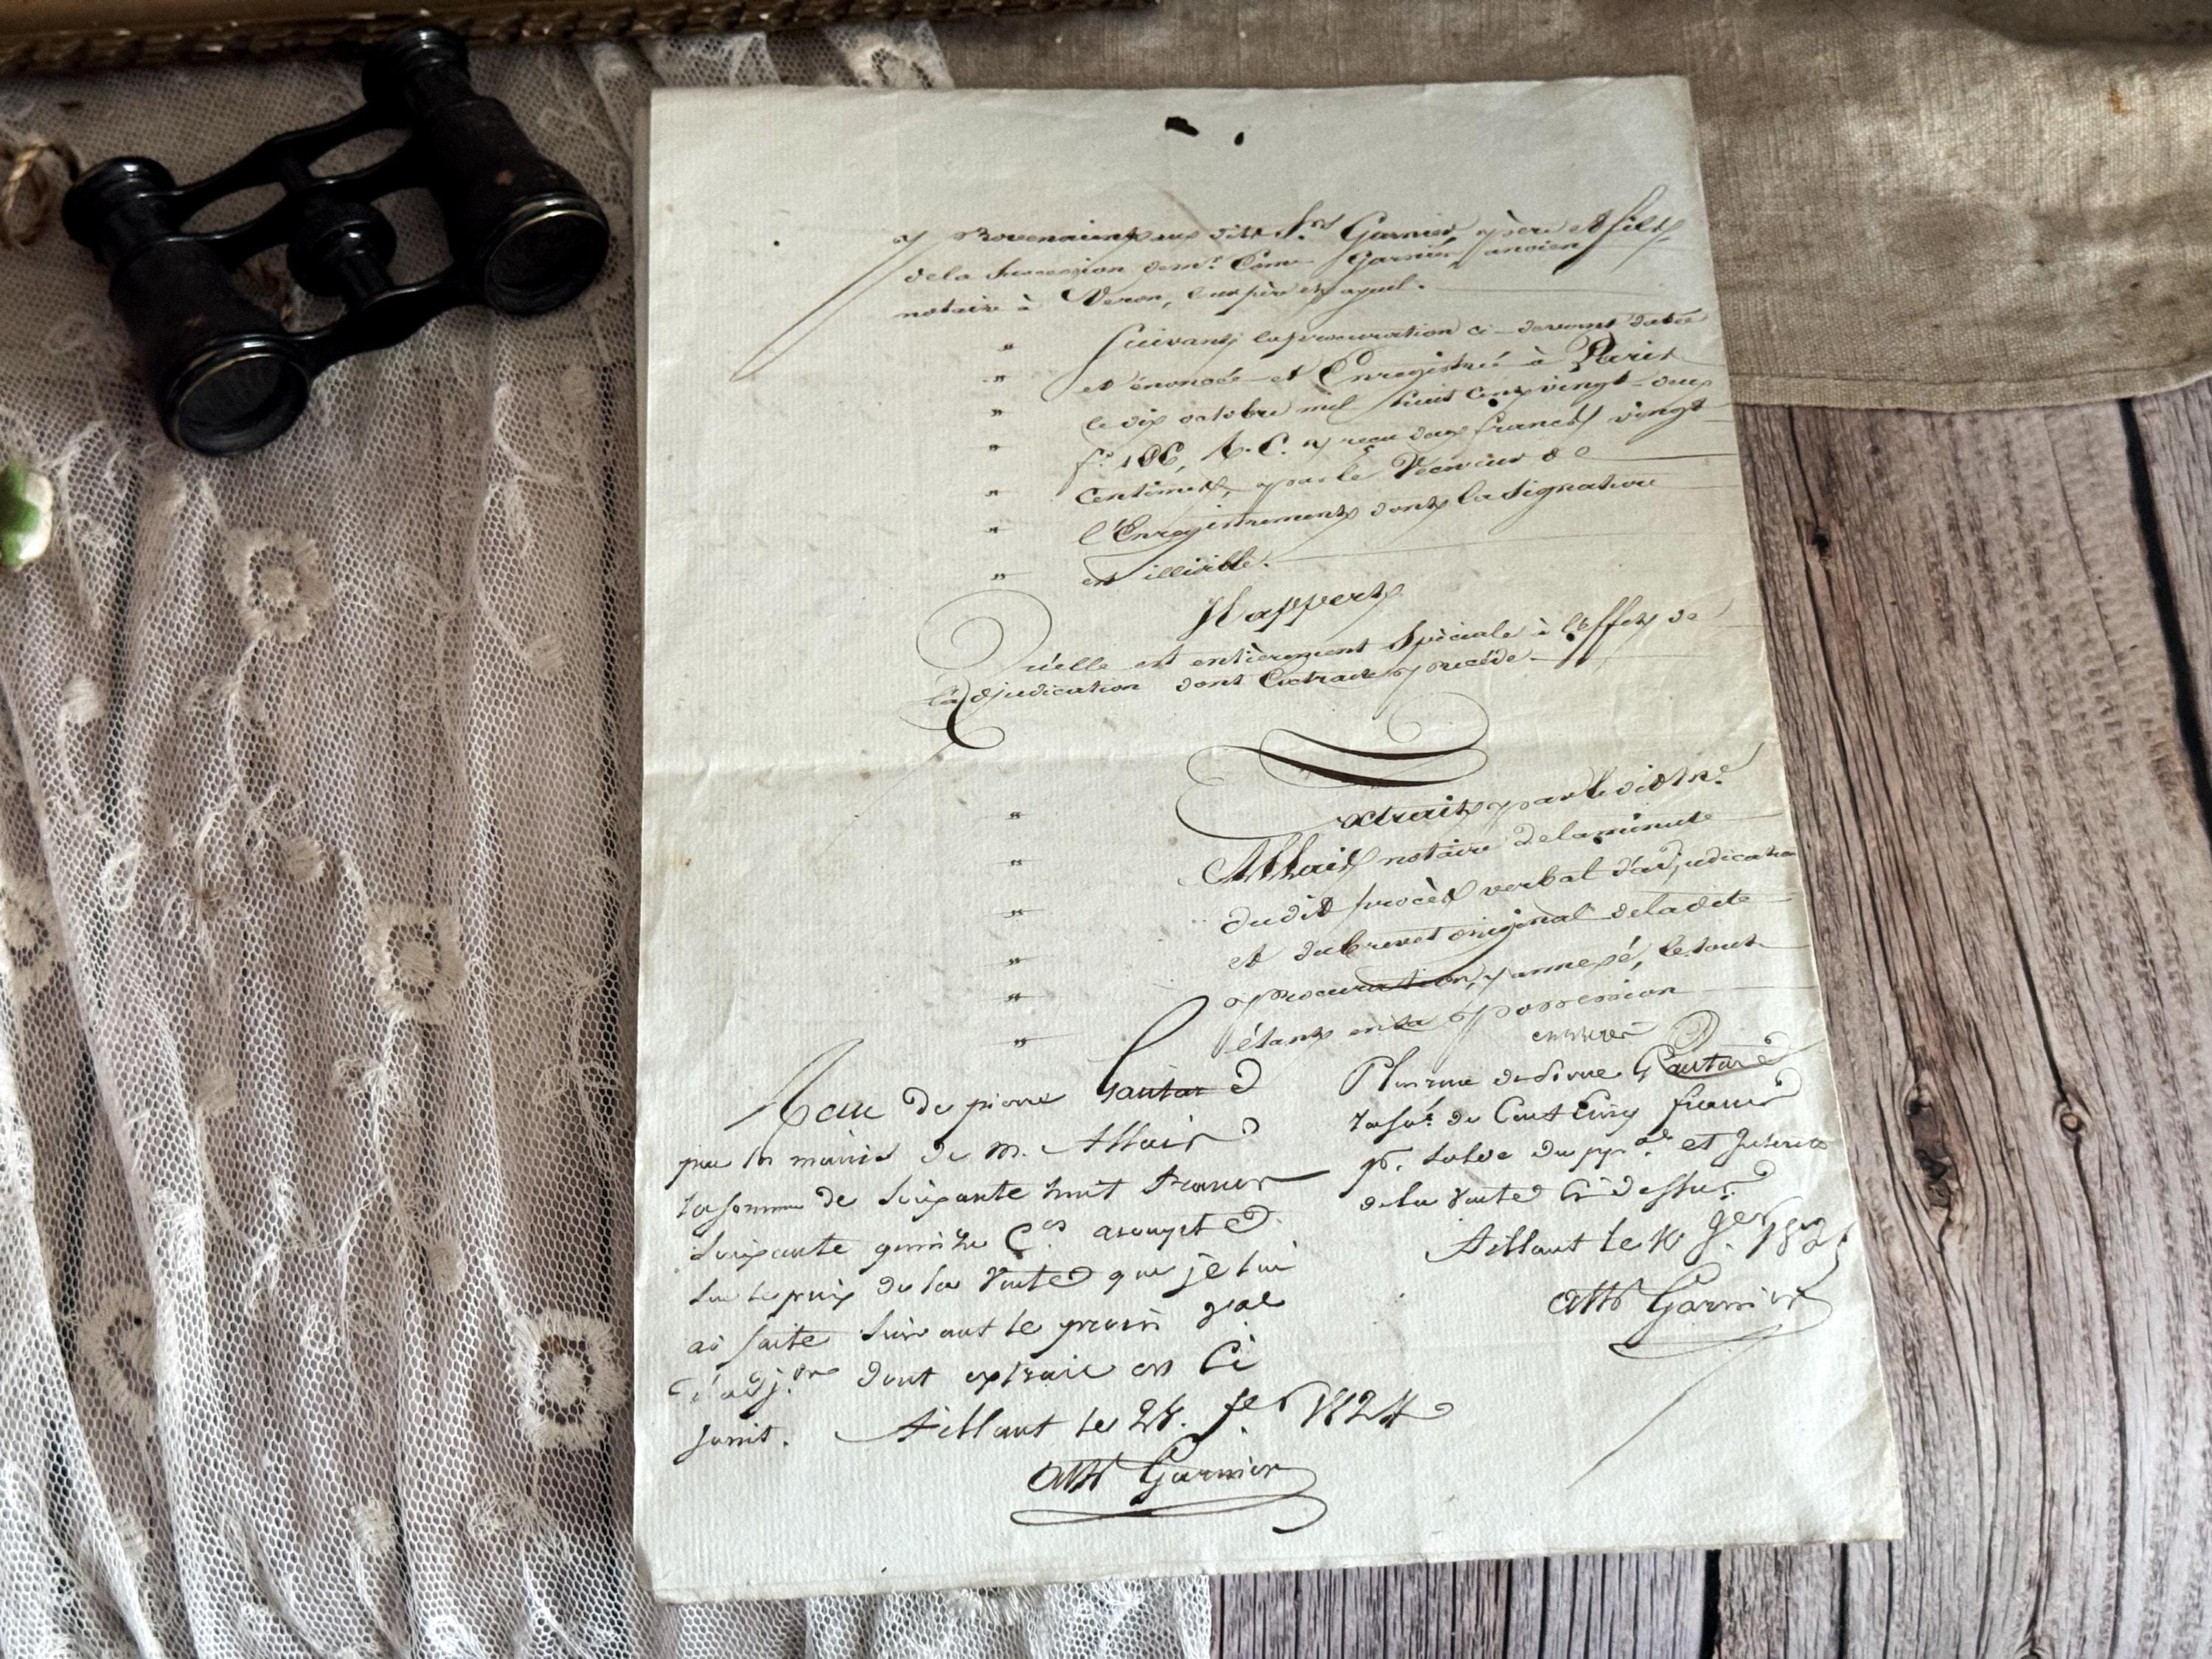 Provenants aux dits Srs Garnier, père et fils
de la Succession de mr. Côme Garnier, ancien
notaire à Véron, leur père et ayeul.
" Suivant la procuration ci-devant datée
" et énoncée et Enregistrée à Paris
" le dix octobre mil huit cent vingt-deux
" fo. 186, R. C. reçu deux francs vingt
" Centimes, par le Receveur de
" l'Enregistrement dont la Signature
" est illisible.
Il appert
Qu'elle est entièrement Spéciale à l'Effet de
l'adjudication dont Extrait précède.
" Extrait par ledit Me
" Allais notaire de la minute
" dudit procès verbal d'adjudication
" et du brevet original de ladite
" procuration, y annexé, le tout
" étant en sa possession
Reçu de pierre Gautard
par les mains de M. Allais
la somme de Soixante huit francs
Soixante quinze Ces acompte
Sur le prix de la Vente que je lui
ai faite Suivant le gral
d'adjon dont extrait est Ci
joint. Aillant le 24. 1824
Ath Garnier
Plus reçu de Pierre Gautard
la se. de Cent Cinq francs
pr. Solde du ppal et Intérêts
de la Vente Ci dessus
Aillant le 10 182
Ath Garnier